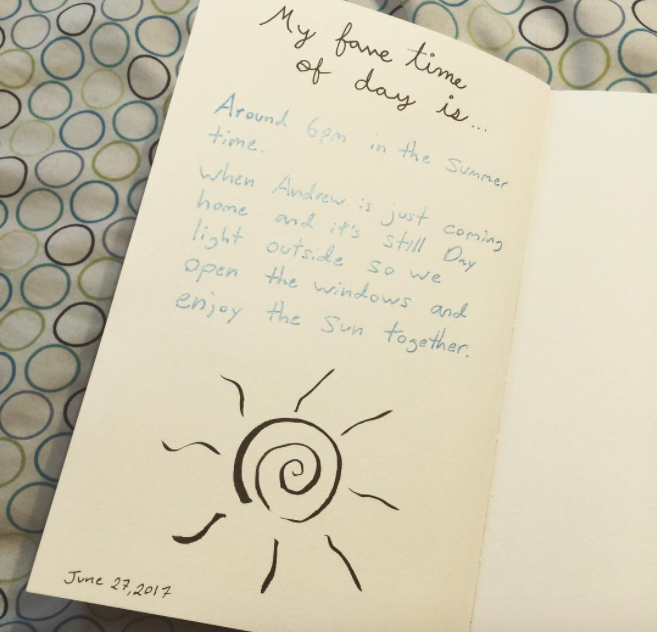 My fave time
of day is...
Around 6pm in the Summer
time.
When Andrew is just coming
home and it's still Day
light outside so we
open the windows and
enjoy the Sun together.
June 27, 2017